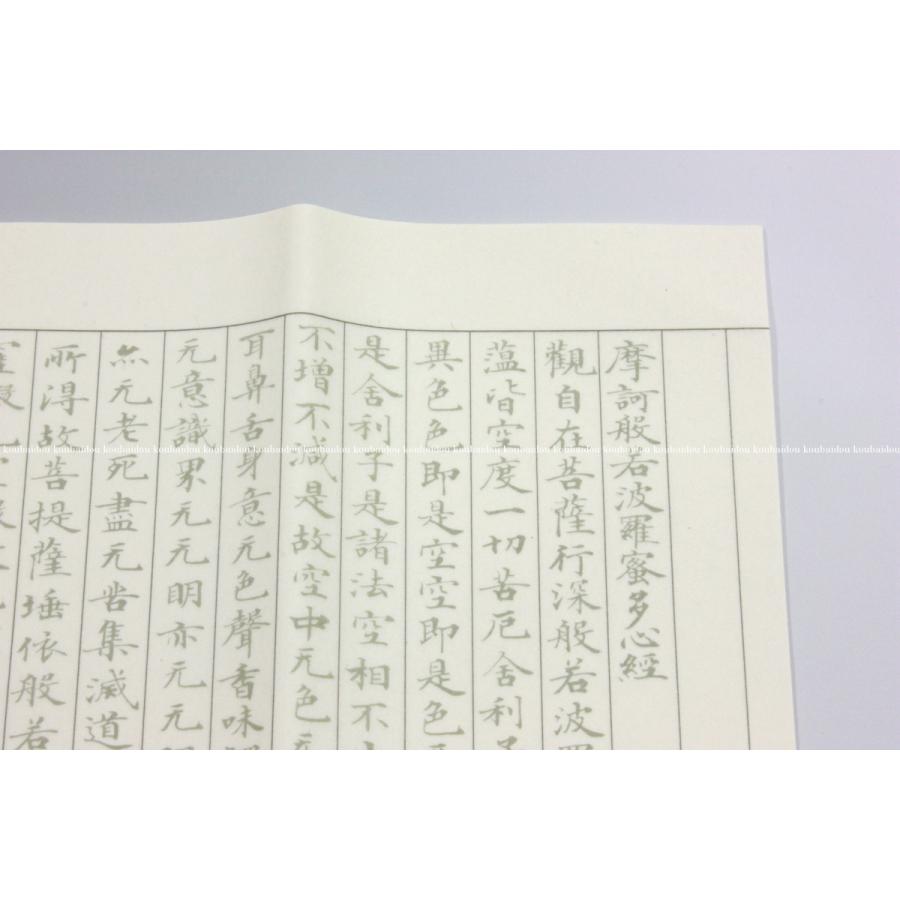 摩訶般若波羅蜜多心經
觀自在菩薩行深般若波羅
蘊皆空度一切苦厄舍利子
異色色即是空空即是色
是舍利子是諸法空相不
不增不減是故空中无色
耳鼻舌身意无色聲香味
无意識界无无明亦无无
無无老死盡无苦集滅道
所得故菩提薩埵依般若
koubaidou koubaidou koubaidou koubaidou koubaidou koubaidou koubaidou koubaidou koubaidou koubaidou koubaidou koubaidou koubaidou koubaidou koubaidou koubaidou